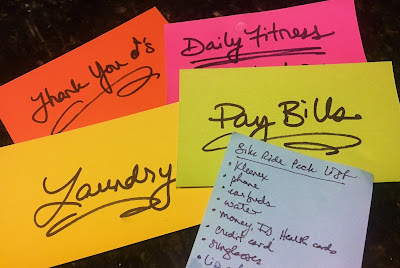 Thank You
Daily Fitness
Pay Bills
Laundry
Bike Ride Pack
• Kleenex
• phone
• earbuds
• water
• money ID Health cards
• credit card
• sunglasses